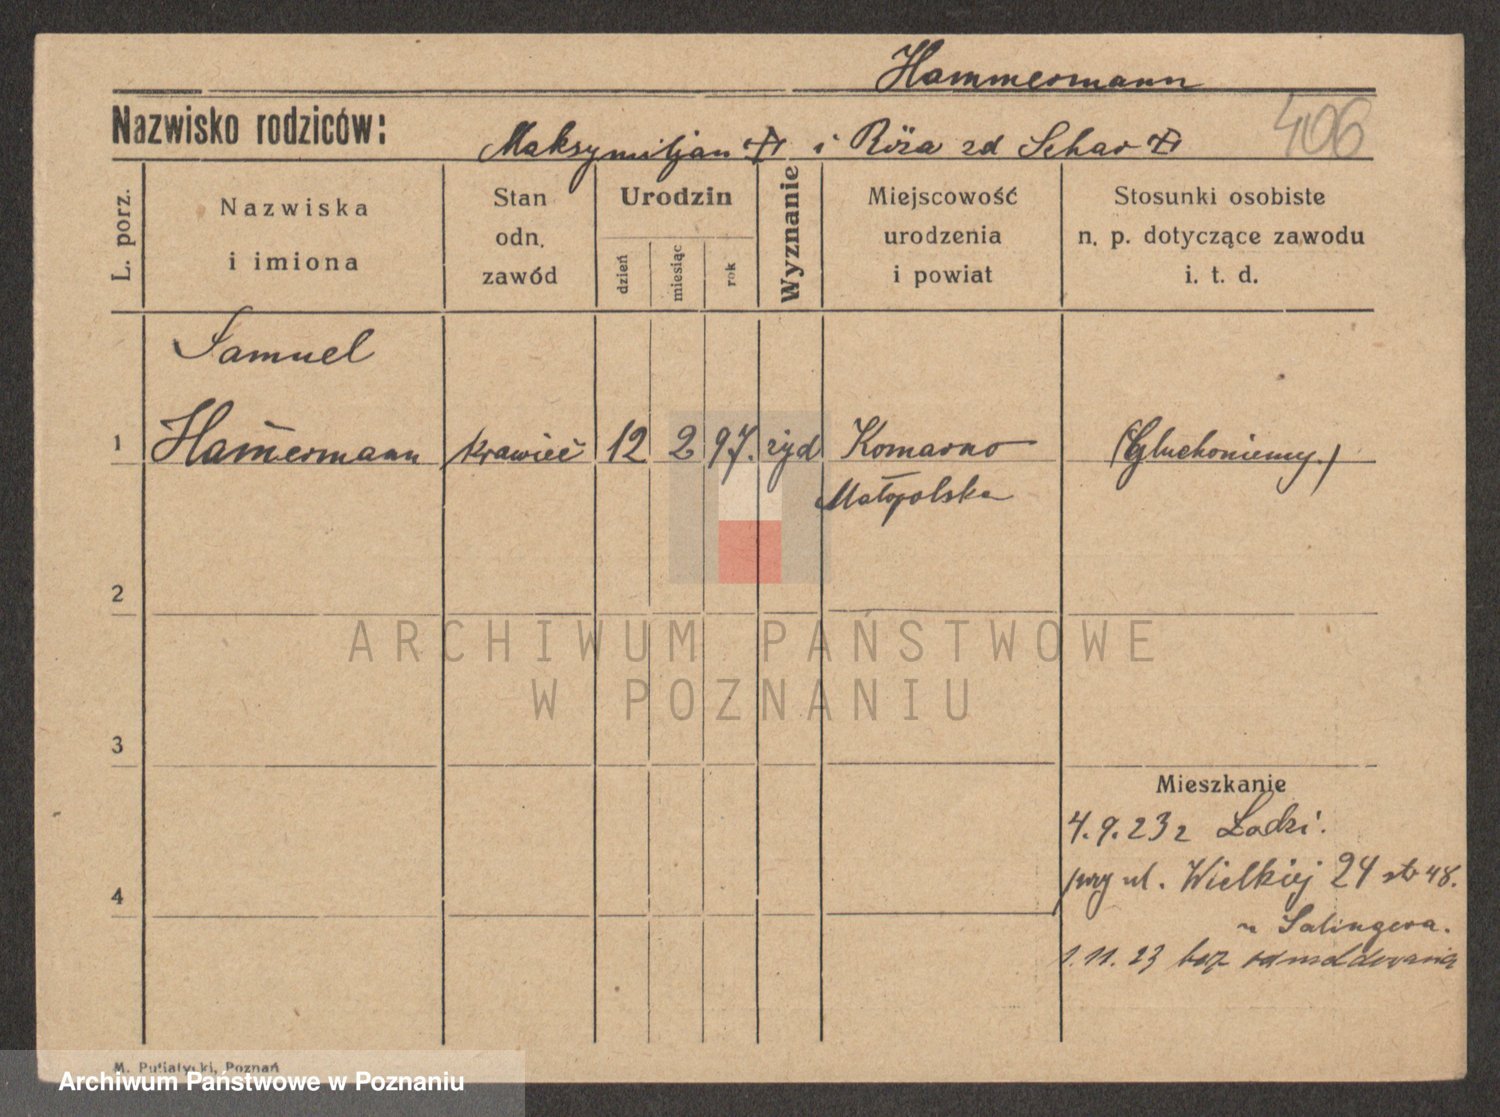 Hammermann
Nazwisko rodziców:
Maksymiljan i Róża zd Schar
406
L. porz.
Nazwiska
i imiona
Stan
odn.
zawód
Urodzin
dzień
miesiąc
rok
Wyznanie
Miejscowość
urodzenia
i powiat
Stosunki osobiste
n. p. dotyczące zawodu
i. t. d.
Samuel
1 Ham̄ermann krawiec 12 2 97. żyd Komarno (Głuchoniemy.)
Małopolska
2
ARCHIWUM PAŃSTWOWE
W POZNANIU
3
Mieszkanie
4.9.23 z Łodzi.
przy ul. Wielkiej 24 48.
4
u Salingera.
1.11.23 bez odmeldowania
M. Putiatycki, Poznań
Archiwum Państwowe w Poznaniu